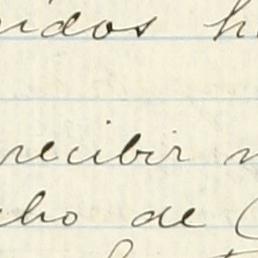 idos h
recibir
cho de